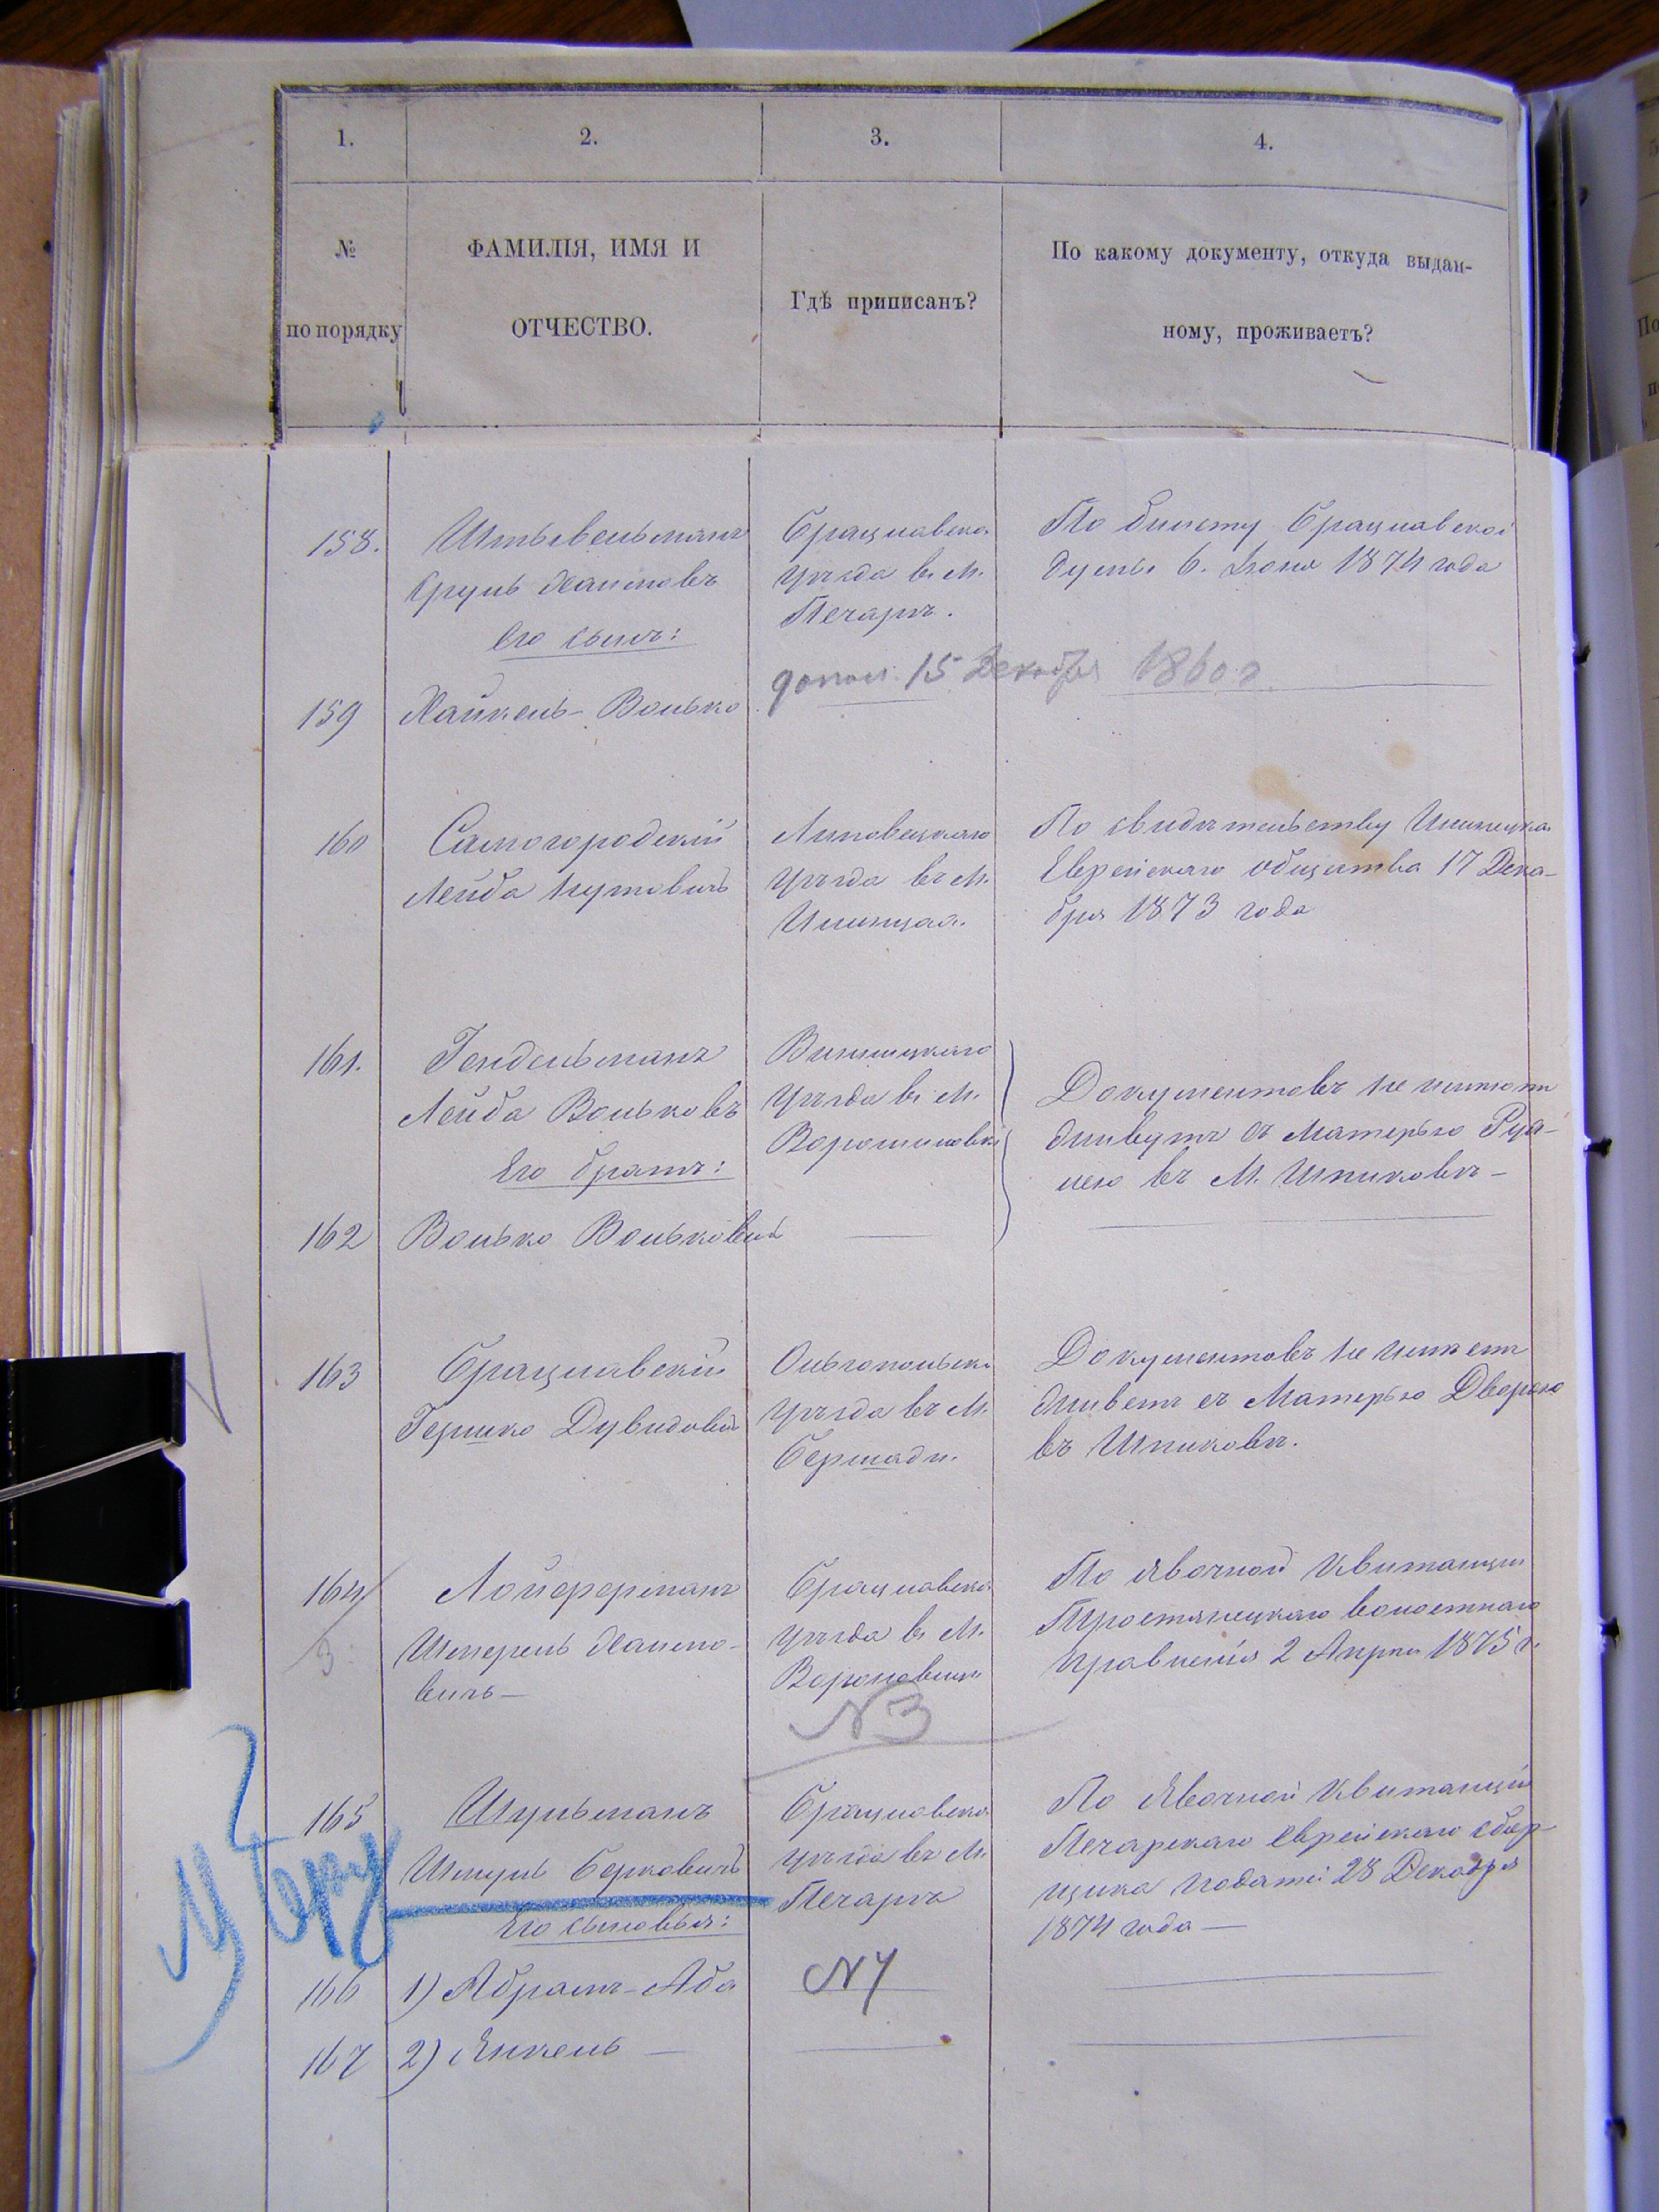 1.
2.
3.
4.
№
по порядку
ФАМИЛІЯ, ИМЯ И
ОТЧЕСТВО.
Гдѣ приписанъ?
По какому документу, откуда выдан-
ному, проживаетъ?
158.
Сруль Хаимовъ
Его сынъ:
Брацлавска
уѣзда въ м.
Печарѣ.
По билету Брацлавской
Думы 6. Іюня 1874 года
15 Декабря 1860 г.
159
Хайкель-Волько
160
Самогородскій
Лейба
Липовецкаго
уѣзда въ м.
Илинцах.
По свидѣтельству Илинецка
Еврейскаго общества 17 Дека-
бря 1873 года
161.
Гендельманъ
Лейба Вольковъ
Его братъ:
Винницкаго
уѣзда въ м.
Ворошиловкѣ
Документовъ не имѣютъ
живутъ съ матерью Рух-
лею въ м. Шпиковѣ-
162
Волько Вольковичъ
163
Брацлавскій
Гершко Дувидовичъ
Ольгопольска
уѣзда въ м.
Бершади.
Документовъ не имѣетъ
живетъ съ матерью Дворою
въ Шпиковѣ.
164
3
Лойферманъ
Шмерель Хаимо-
вичъ-
Брацлавска
уѣзда въ м.
Вороновицѣ
N3
По явочной квитанціи
Тростянецкаго волостнаго
правленія 2 Апрѣля 1875 г.
165
Шульманъ
Шмуль Берковичъ
Его сыновья:
Брацлавска
уѣзда въ м.
Печарѣ
По явочной квитанціи
Печарскаго еврейскаго сбор-
щика податей 28 Декабря
1874 года-
166
1) Абрамъ-Аба
N7
167
2) Янкель-